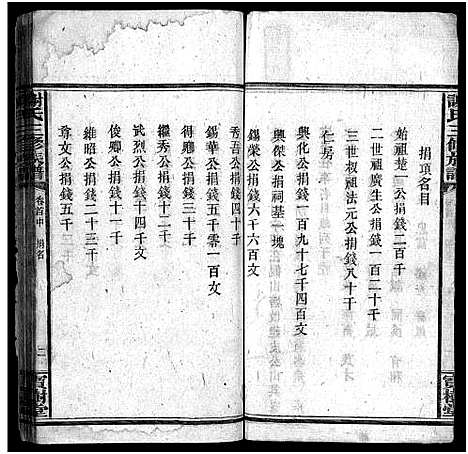 謝氏三修族譜
捐項名目
始祖楚一公捐錢二百千
二世祖廣生公捐錢一百二十千
三世叔祖法元公捐錢八十千
仁房
興化公捐錢一百九十七千四百文
興傑公捐祠基一塊
錫榮公捐錢六千六百文
錫華公捐錢五千零一百文
秀吾公捐錢五千
得卿公捐錢三十千
繼秀公捐錢十二千
武烈公捐錢十四千文
俊卿公捐錢十一千
維昭公捐錢二十三千
尊文公捐錢五千
謝氏三修族譜
卷首中
捐名
二
寶樹堂
寶樹堂